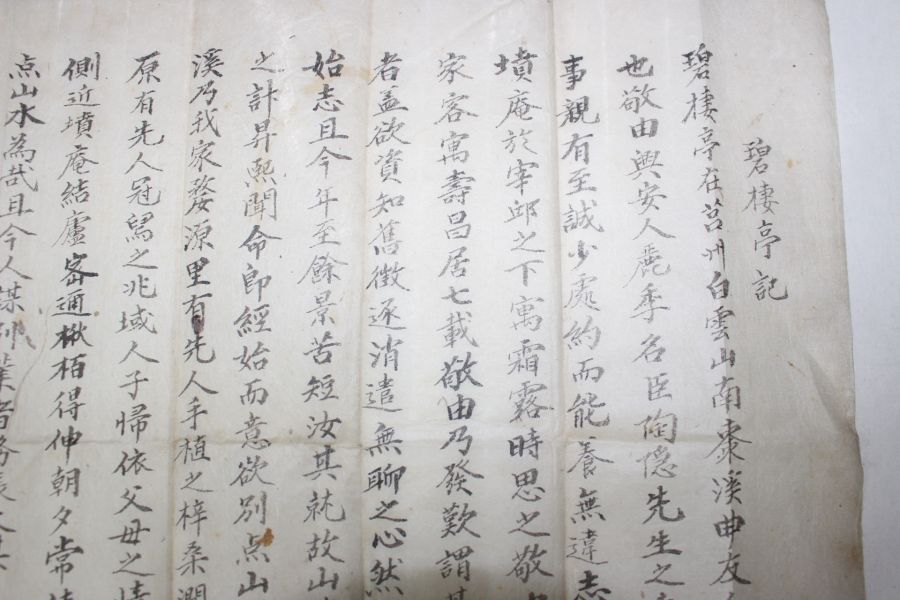 碧棲亭記
碧棲亭在莒州白雲山南棗溪曲友
也敬由興安人麗季名臣陶隱先生之
事親有至誠少處約而能養無違志
墳庵於宰邱之下寓霜露時思之敬
家客寓壽昌居七載敬由乃發歎謂
者盖欲資知舊徵逐消遣無聊之心然
始志且今年至餘景苦短汝其就故山
之計昇熙聞命即經始而意欲別点山
溪乃我家婺源里有先人手植之梓桑澗
原有先人冠舄之兆域人子歸依父母之情
側近墳庵結廬密邇楸栢得伸朝夕常
点山水為哉且今人謀業者務